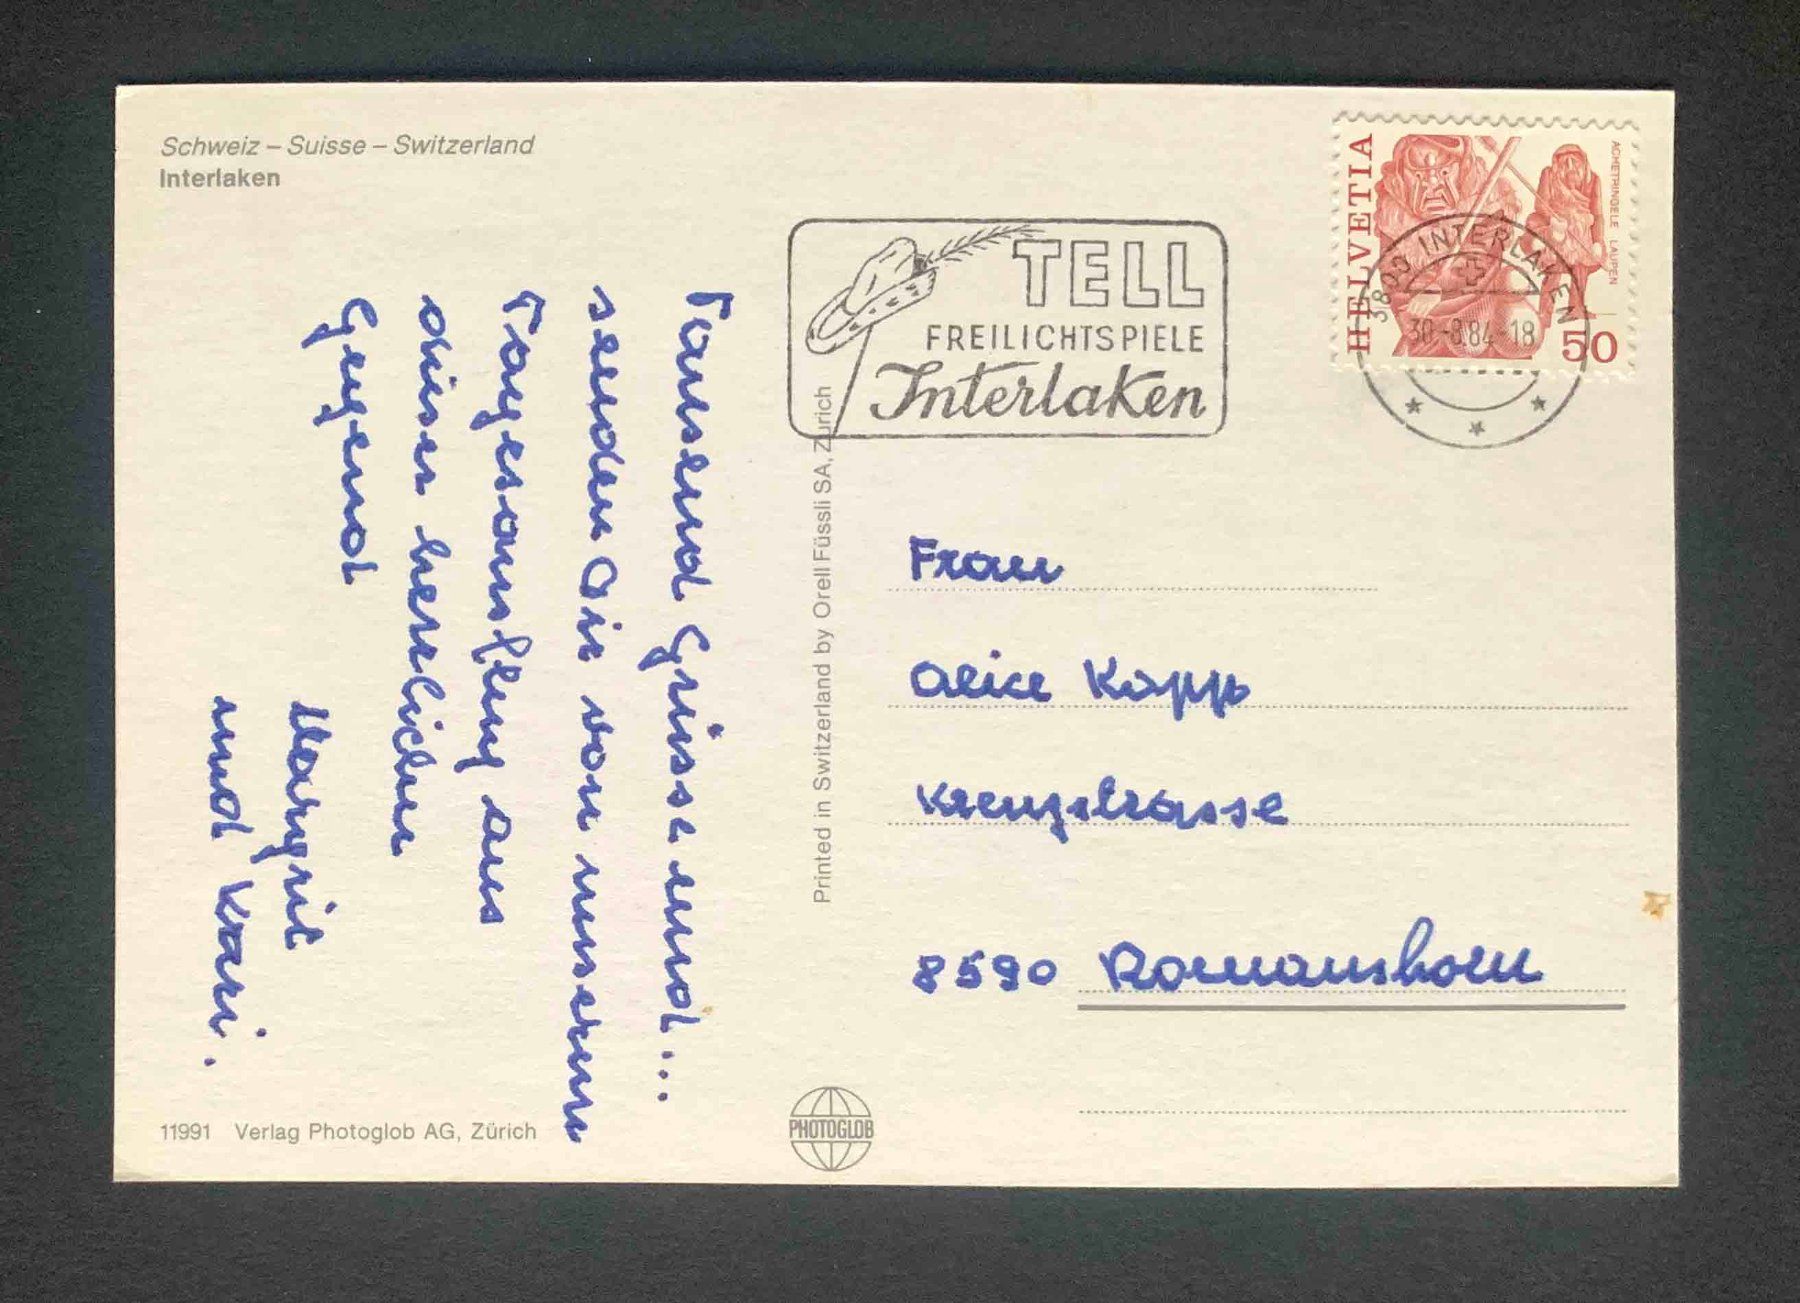 Schweiz – Suisse – Switzerland
Interlaken
Tausend Grüsse und...
senden Dir von unserem
Tagesausflug aus
dieser herrlichen
Gegend
Margrit
und Kari.
11991 Verlag Photoglob AG, Zürich
Printed in Switzerland by Orell Füssli SA, Zürich
PHOTOGLOB
TELL
FREILICHTSPIELE
Interlaken
HELVETIA
ACHETRINGELE LAUPEN
50
3800 INTERLAKEN
30.-8.84-18
Frau
Alice Kopp
Kreuzstrasse
8590 Romanshorn